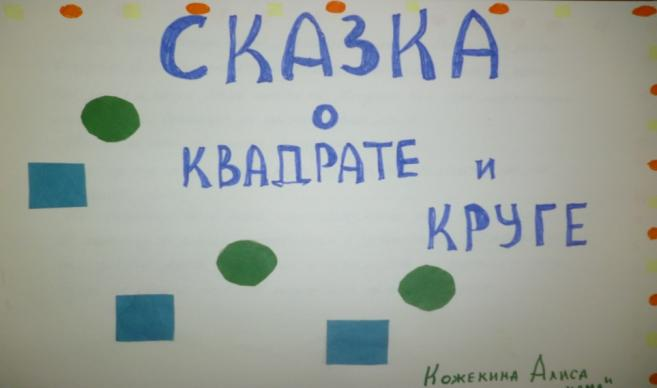 СКАЗКА
о
КВАДРАТЕ и
КРУГЕ
Кожекина Алиса
и